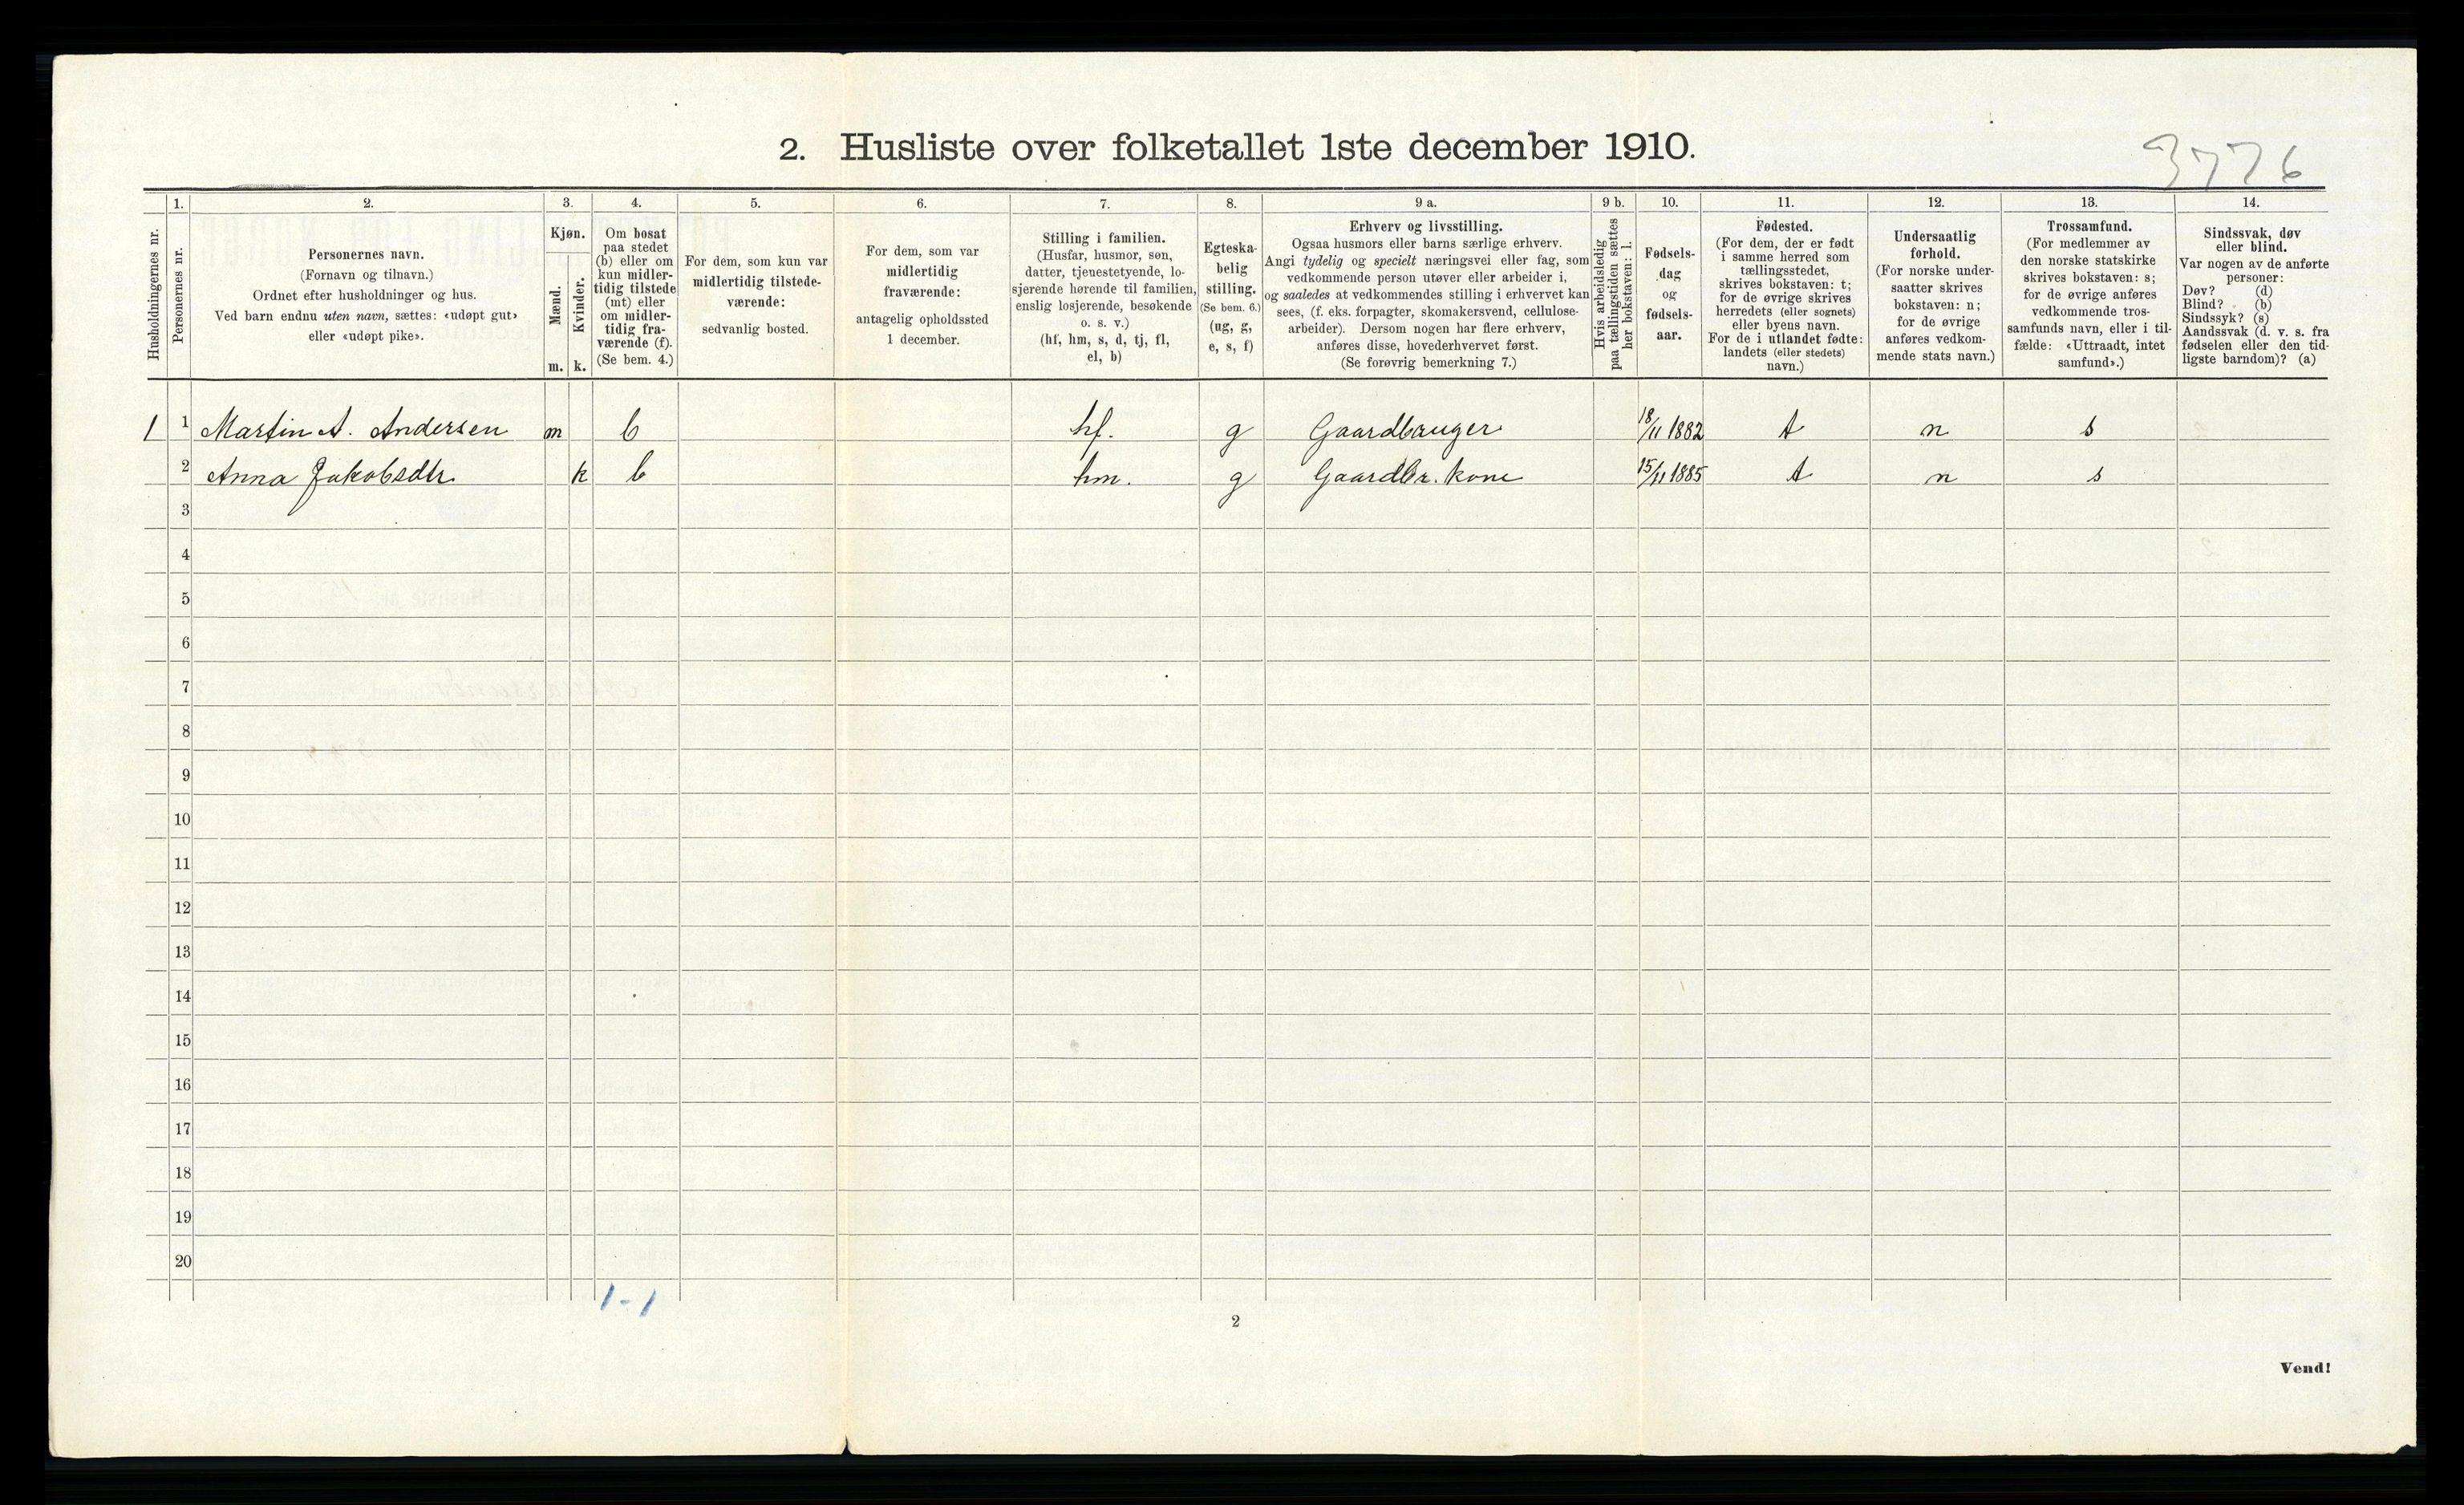 2. Husliste over folketallet 1ste december 1910.
3776
Husholdningernes nr.
1.
Personernes nr.
2.
Personernes navn.
(Fornavn og tilnavn.)
Ordnet efter husholdninger og hus.
Ved barn endnu uten navn, sættes: «udøpt gut»
eller «udøpt pike».
3.
Kjøn.
Mænd.
m.
Kvinder.
k.
4.
Om bosat
paa stedet
(b) eller om
kun midler-
tidig tilstede
(mt) eller
om midler-
tidig fra-
værende (f).
(Se bem. 4.)
5.
For dem, som kun var
midlertidig tilstede-
værende:
sedvanlig bosted.
6.
For dem, som var
midlertidig
fraværende:
antagelig opholdssted
1 december.
7.
Stilling i familien.
(Husfar, husmor, søn,
datter, tjenestetyende, lo-
sjerende hørende til familien,
enslig losjerende, besøkende
o. s. v.)
(hf, hm, s, d, tj, fl,
el, b)
8.
Egteska-
belig
stilling.
(Se bem. 6.)
(ug, g,
e, s, f)
9 a.
Erhverv og livsstilling.
Ogsaa husmors eller barns særlige erhverv.
Angi tydelig og specielt næringsvei eller fag, som
vedkommende person utøver eller arbeider i,
og saaledes at vedkommendes stilling i erhvervet kan
sees, (f. eks. forpagter, skomakersvend, cellulose-
arbeider). Dersom nogen har flere erhverv,
anføres disse, hovederhvervet først.
(Se forøvrig bemerkning 7.)
9 b.
Hvis arbeidsledig
paa tællingstiden sættes
her bokstaven: l.
10.
Fødsels-
dag
og
fødsels-
aar.
11.
Fødested.
(For dem, der er født
i samme herred som
tællingsstedet,
skrives bokstaven: t;
for de øvrige skrives
herredets (eller sognets)
eller byens navn.
For de i utlandet fødte:
landets (eller stedets)
navn.)
12.
Undersaatlig
forhold.
(For norske under-
saatter skrives
bokstaven: n;
for de øvrige
anføres vedkom-
mende stats navn.)
13.
Trossamfund.
(For medlemmer av
den norske statskirke
skrives bokstaven: s;
for de øvrige anføres
vedkommende tros-
samfunds navn, eller i til-
fælde: «Uttraadt, intet
samfund».)
14.
Sindssvak, døv
eller blind.
Var nogen av de anførte
personer:
Døv? (d)
Blind? (b)
Sindssyk? (s)
Aandssvak (d. v. s. fra
fødselen eller den tid-
ligste barndom)? (a)
1 1 Martin A. Andersen m b hf. g Gaardbruger 18/11 1882 t n s
2 Anna Jakobsdtr. k b hm. g Gaardbr. kone 15/11 1885 t n s
3
4
5
6
7
8
9
10
11
12
13
14
15
16
17
18
19
20
1 - 1
2
Vend!